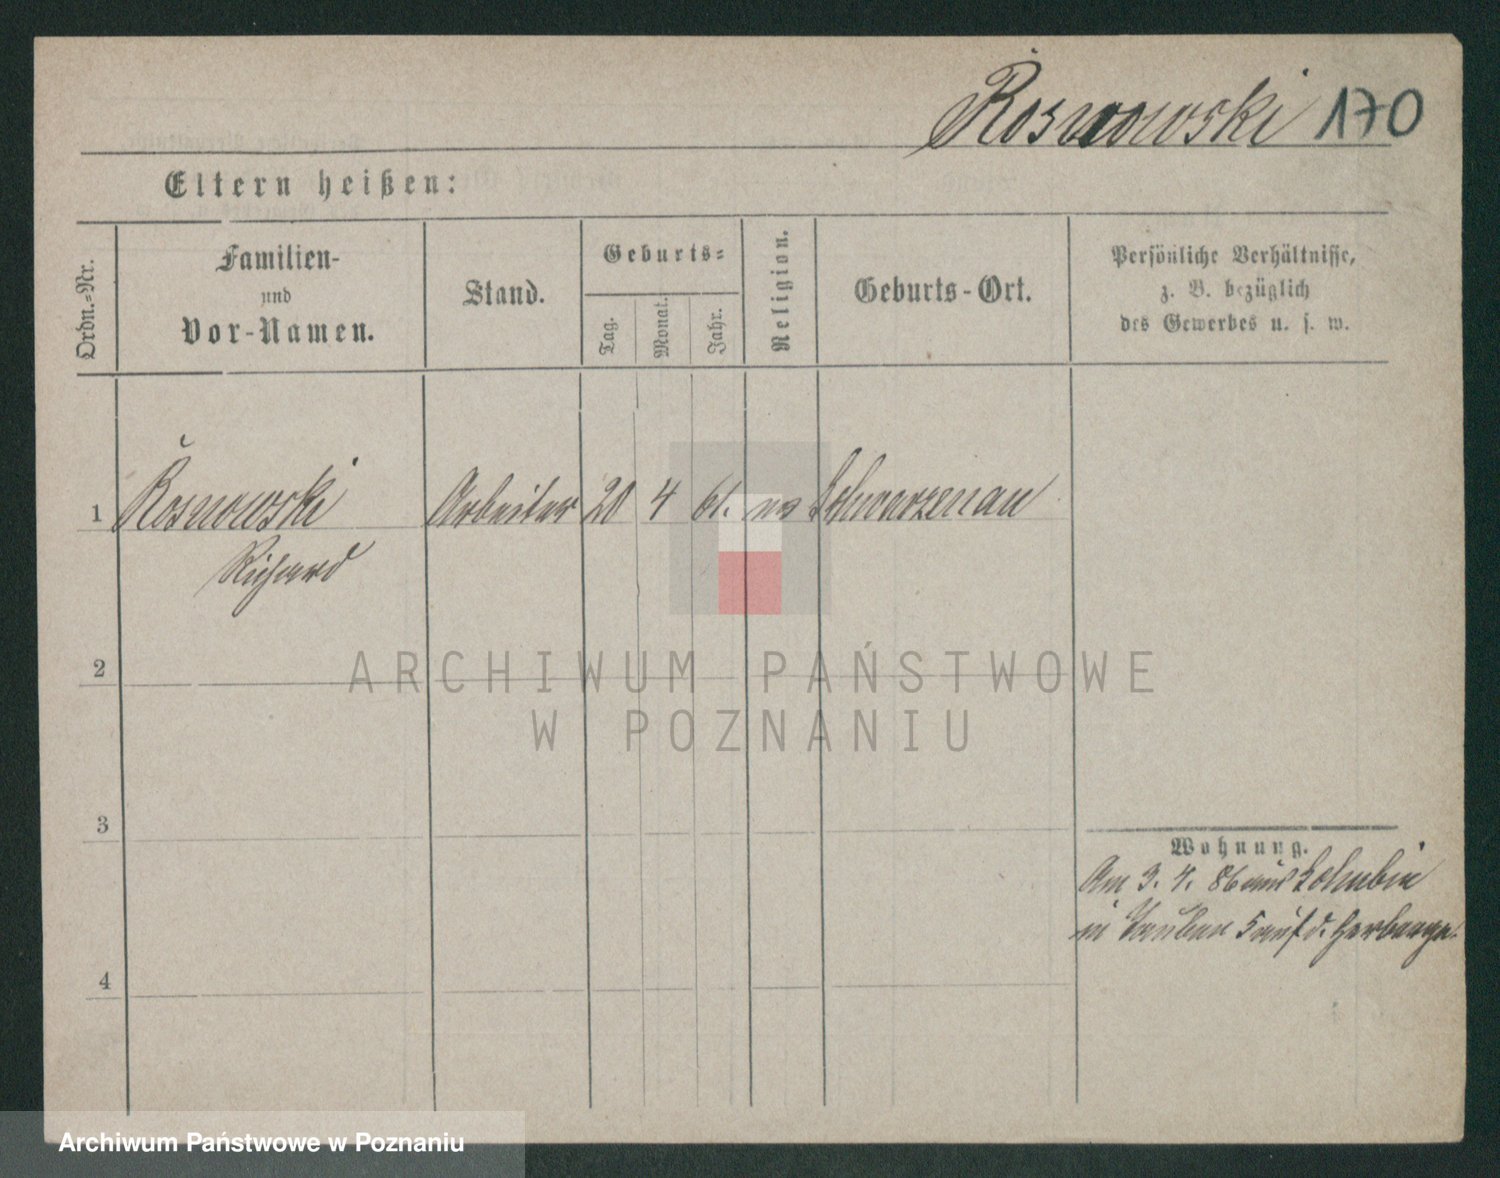 Rosnowski 170
Eltern heißen:
Ordn.=Nr.
Familien-
und
Vor-Namen.
Stand.
Geburts=
Tag.
Monat.
Jahr.
Religion.
Geburts-Ort.
Persönliche Verhältnisse,
z. B. bezüglich
des Gewerbes u. s. w.
1 Rosnowski Arbeiter 20 4 61. ev Schwarzenau
Richard
2
ARCHIWUM PAŃSTWOWE
W POZNANIU
3
Wohnung.
Am 3. 4. 86 aus
in 5 auf d. Herberge.
4
Archiwum Państwowe w Poznaniu